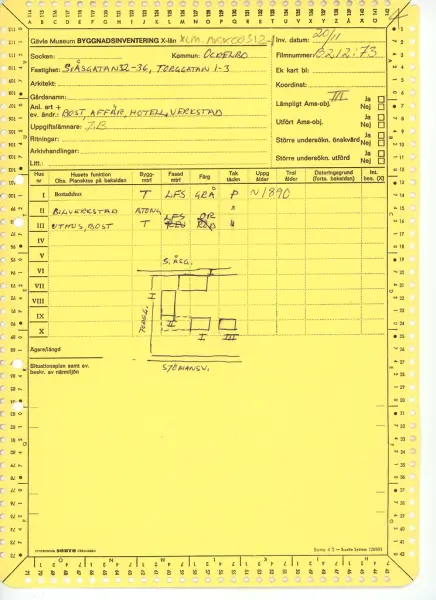 Gävle Museum BYGGNADSINVENTERING X-län XLM. Inv. datum: 20/1
Socken: Kommun: OCKELBO Filmnummer: B212:73
Fastighet: S:ÅSGATAN 32-36, TORGGATAN 1-3 Ek kart bl:
Arkitekt: Koordinat:
Gårdsnamn: III
Anl. art + ev. ändr.: BOST, AFFÄR, HOTELL, VERKSTAD Lämpligt Ams-obj. Ja Nej
Uppgiftslämnare: Utfört Ams-obj. Ja Nej
Ritningar: Större undersökn. önskvärd Ja Nej
Arkivhandlingar: Större undersökn. utförd Ja Nej
Litt.:
Hus nr Husets funktion Obs. Planskiss på baksidan Bygg-mtrl Fasad mtrl Färg Tak täckn Uppg ålder Trol ålder Dateringsgrund (Forts. baksidan) Int. bes. (X)
I Bostadshus T LFS GRÅ P ~1890
II BILVERKSTAD BTONG "
III UTHUS, BOST T LFS "
IV
V
VI
VII
VIII
IX
X
S. ÅSG.
TORGG.
II
I III
Ägare/längd
Situationsplan samt ev. beskr. av närmiljön
SJÖMANSV.
SORTO